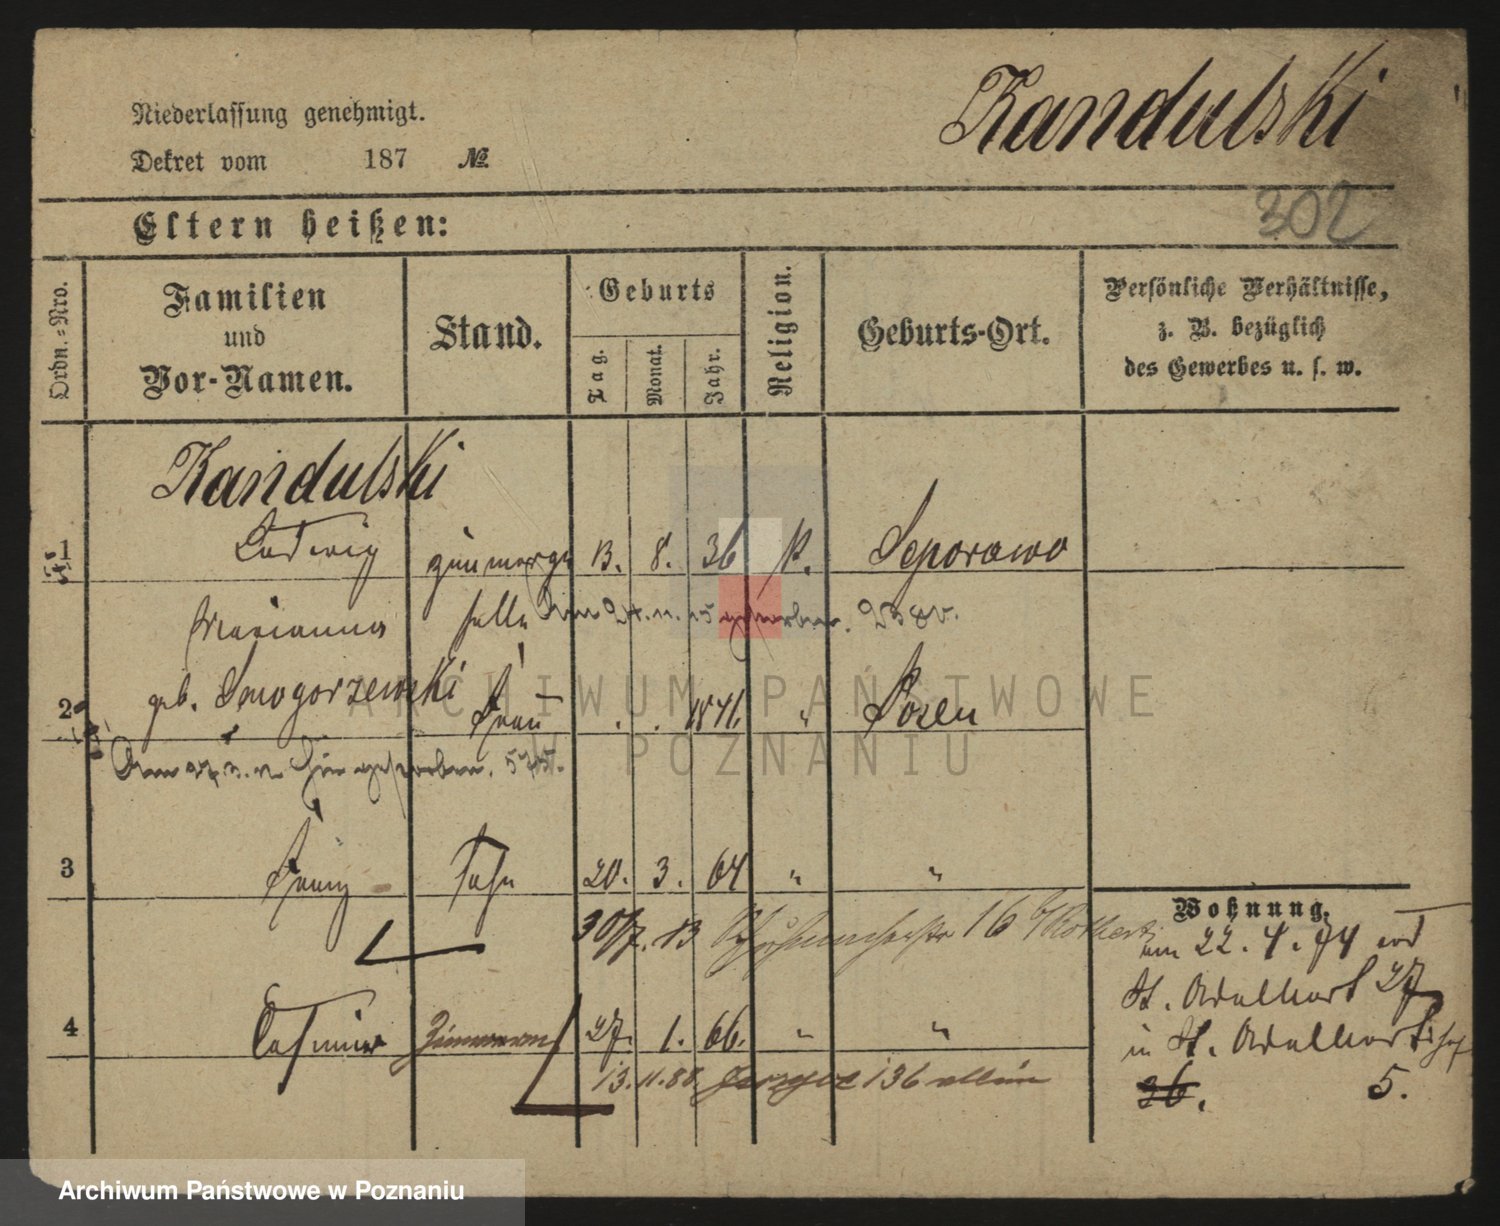 Niederlassung genehmigt.
Kandulski
Dekret vom 187 №
302
Eltern heißen:
Ordn.-Nro.
Familien
und
Vor-Namen.
Stand.
Geburts
Tag.
Monat.
Jahr.
Religion.
Geburts-Ort.
Persönliche Verhältnisse,
z. B. bezüglich
des Gewerbes u. s. w.
Kandulski
1 Ludwig 13. 8. 36 k. Seporowo
Marianna
geb. Smogorzewski
2 Frau . . 1841. " Posen
Am 27.3. hier gestorben.
3 Franz Sohn 20. 3. 64 " "
Wohnung.
30/7. 83 16
am 22.4.74
St. Adalbert 27
4 Casimir Zimmermann 27. 1. 66. " "
in St. Adalbert
13.11.88. 136 allein
36. 5.
ARCHIWUM PAŃSTWOWE
W POZNANIU
Archiwum Państwowe w Poznaniu